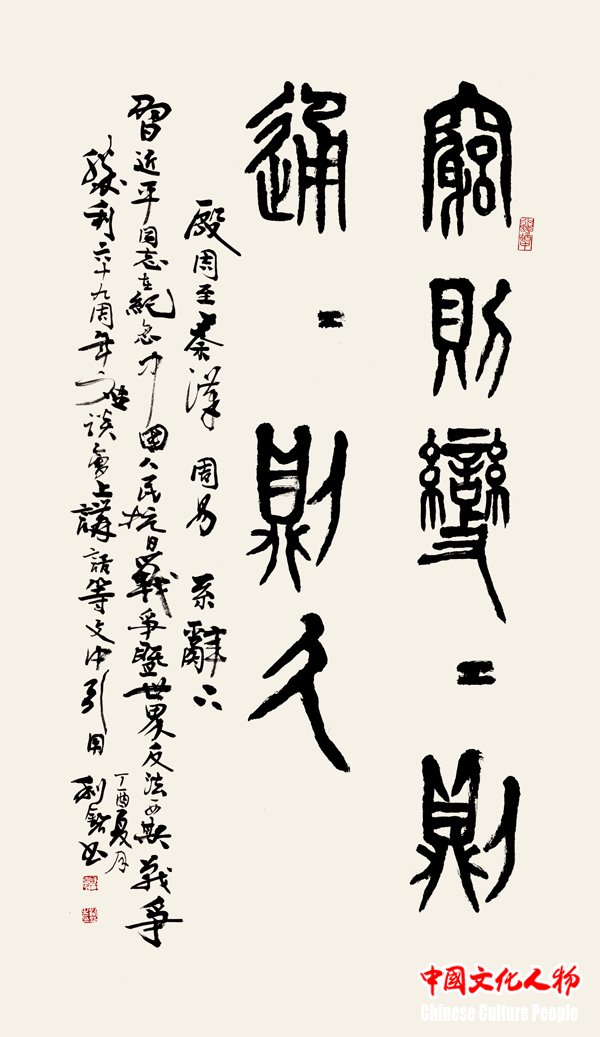 窮則變=則
通=則久
殷周至秦漢 周易 系辭下
習近平同志在紀念中國人民抗日戰爭暨世界反法西斯戰爭
勝利六十九周年座談會上講話等文中引用
丁酉夏月
中國文化人物
Chinese Culture People